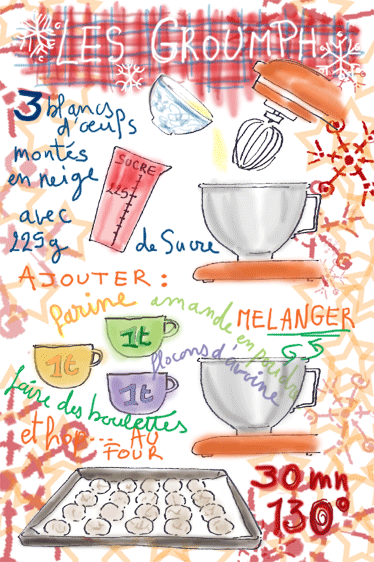 LES GROUMPH
3 blancs
d'œufs
montés
en neige
SUCRE
225
avec
225g
de Sucre
AJOUTER :
farine
amande en poudre
MELANGER
1t
1t
1t
flocons d'avoine
faire des boulettes
et hop... AU
FOUR
30 mn
130°